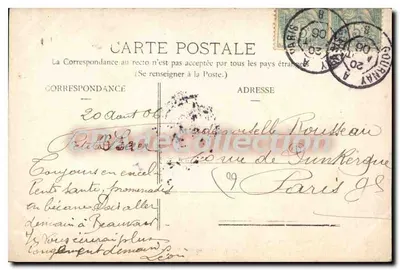 CARTE POSTALE
La Correspondance au recto n'est pas acceptée par tous les pays étrangers
(Se renseigner à la Poste.)
CORRESPONDANCE
ADRESSE
20 Aout 06
Mademoiselle Rousseau
rue de Dunkerque
Paris
Toujours en excel
lente santé, promenades
aller
demain à Beauvais
Je vous écrirai plus
longuement demain
Léon
GOURNAY
20
06